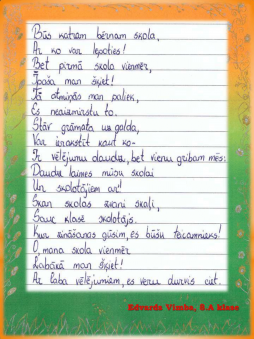 Būs katram bērnam skola,
Ar ko var lepoties!
Bet pirmā skola vienmēr,
Īpaša man šķiet!
Tā atmiņās man paliek,
Es neaizmirstu to.
Stāv grāmata uz galda,
Var ierakstīt kaut ko-
Ir vēlējumu daudz, bet vienu gribam mēs:
Daudz laimes mūsu skolai
Un skolotājiem arī!
Skan skolas zvani skaļi,
Sauc klasē skolotājs.
Kur zināšanas gūsim, es būšu teicamnieks!
O, mana skola vienmēr
Labākā man šķiet!
Ar laba vēlējumiem, es veru durvis ciet.
Edvards Vimba, 8.A klase